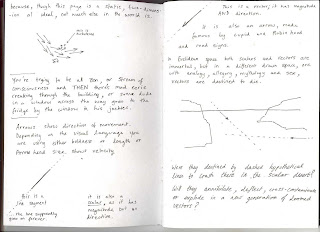 because, though this page is a static, two-dimen-
sional ideal, not much else in the world is.
this is
turbulence
You're trying to at Yan, or stream of
consciousness and THEN there's that eerie
creaking through the building, or some dude
in a window across the way goes to the
fridge by the window in his jockies.
Arrows show direction of movement.
Depending on the visual language you
are using either boldness or length or
arrow head size shows velocity.
This is a
line segment
the line supposedly
goes on forever.
it is also a
scalar, as it has
magnitude but no
direction.
This is a vector; it has magnitude
AND direction.
It is also an arrow, made
famous by cupid and Robin Hood
and road signs.
In Euclidean space both scalars and vectors are
immortal, but in a different drawn space, one
with analogy, allegory, mythology and sex,
vectors are destined to die.
Were they destined by dashed hypothetical
lines to cross there in the scalar desert?
Will they annihilate, deflect, cross-contaminate
or explode in a new generation of doomed
vectors?